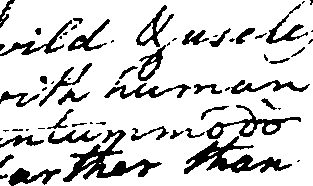 wild & usele
with human
antummodò
farther than